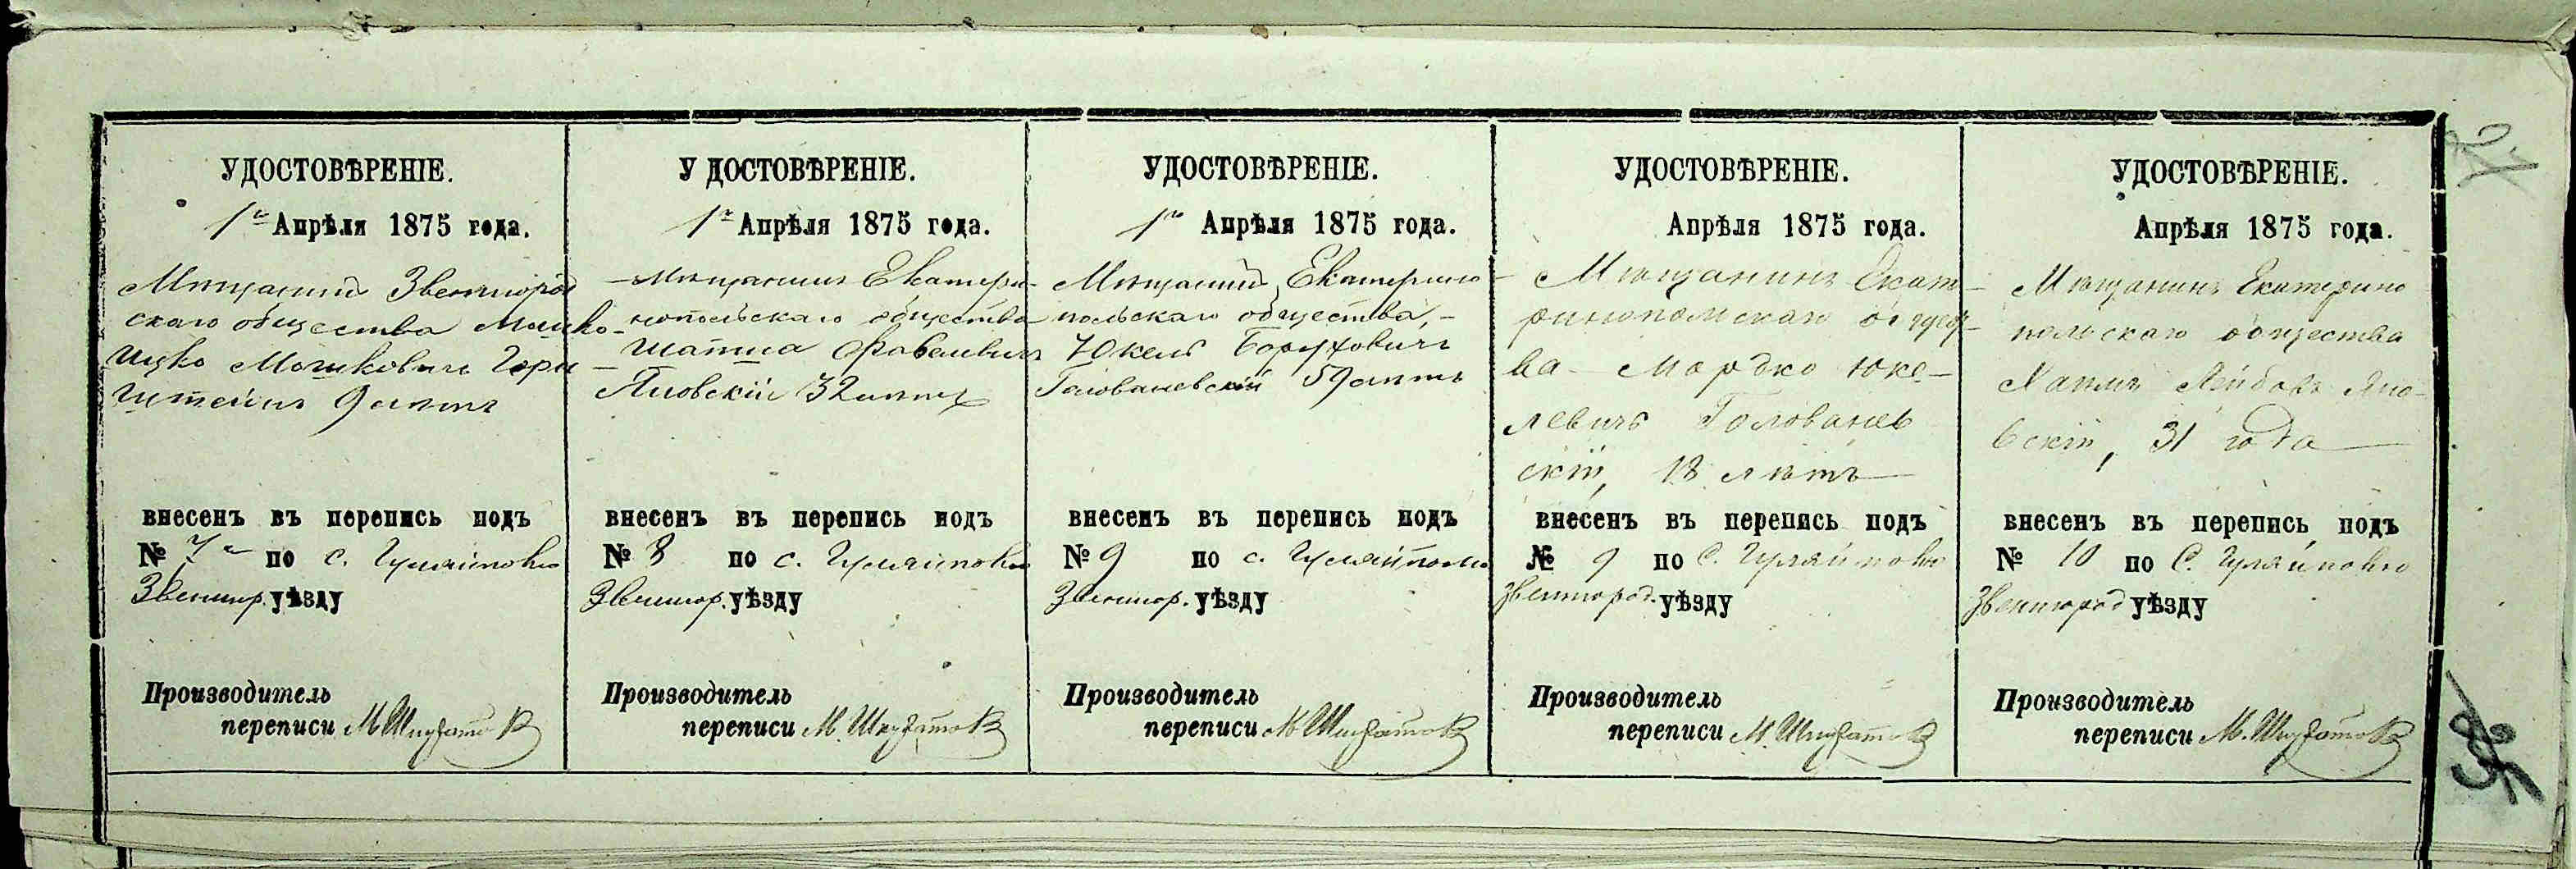 УДОСТОВѢРЕНІЕ.
1го Апрѣля 1875 года.
Мѣщанинъ Звенигород
скаго общества Мошко-
Ицко Мошковичъ Горн
штейнъ 9 лѣтъ
внесенъ въ перепись подъ
№ 7 по с. Гуляйполю
Звенигор. уѣзду
Производитель
переписи М.
УДОСТОВѢРЕНІЕ.
1го Апрѣля 1875 года.
Мѣщанинъ Екатери-
нопольскаго общества
Яновскій 32 лѣтъ
внесенъ въ перепись подъ
№ 8 по с. Гуляйполю
Звенигор. уѣзду
Производитель
переписи М.
УДОСТОВѢРЕНІЕ.
1го Апрѣля 1875 года.
Мѣщанинъ Екатерино-
польскаго общества,-
Юкель Боруховичъ
Голованевскій 59 лѣтъ
внесенъ въ перепись подъ
№ 9 по с. Гуляйполю
Звенигор. уѣзду
Производитель
переписи М.
УДОСТОВѢРЕНІЕ.
Апрѣля 1875 года.
Мѣщанинъ Екате-
ринопольскаго общест-
ва Мордко Юке-
левичъ Голованев
скій, 18 лѣтъ
внесенъ въ перепись подъ
№ 9 по С. Гуляйполю
Звенигород. уѣзду
Производитель
переписи М.
УДОСТОВѢРЕНІЕ.
Апрѣля 1875 года.
Мѣщанинъ Екатерино
польскаго общества
Хаимъ Лейбовъ Яно-
вскій, 31 года
внесенъ въ перепись подъ
№ 10 по С. Гуляйполю
Звенигород уѣзду
Производитель
переписи М.